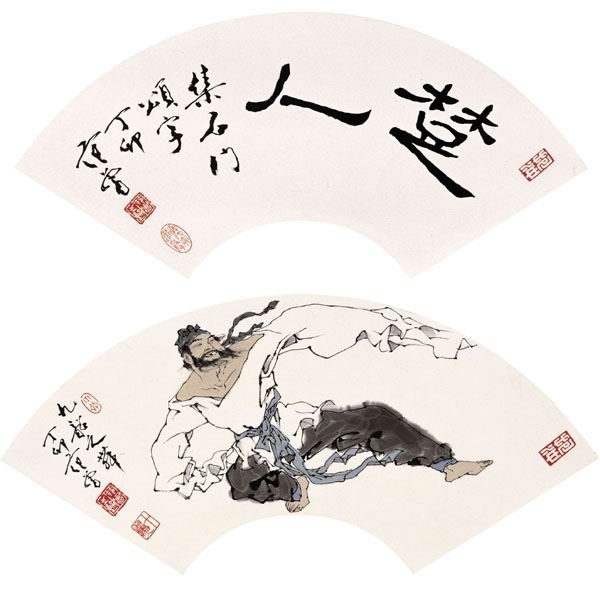 楚人
集石门
頌字
丁卯
范曾
九歌之舞
丁卯 范曾